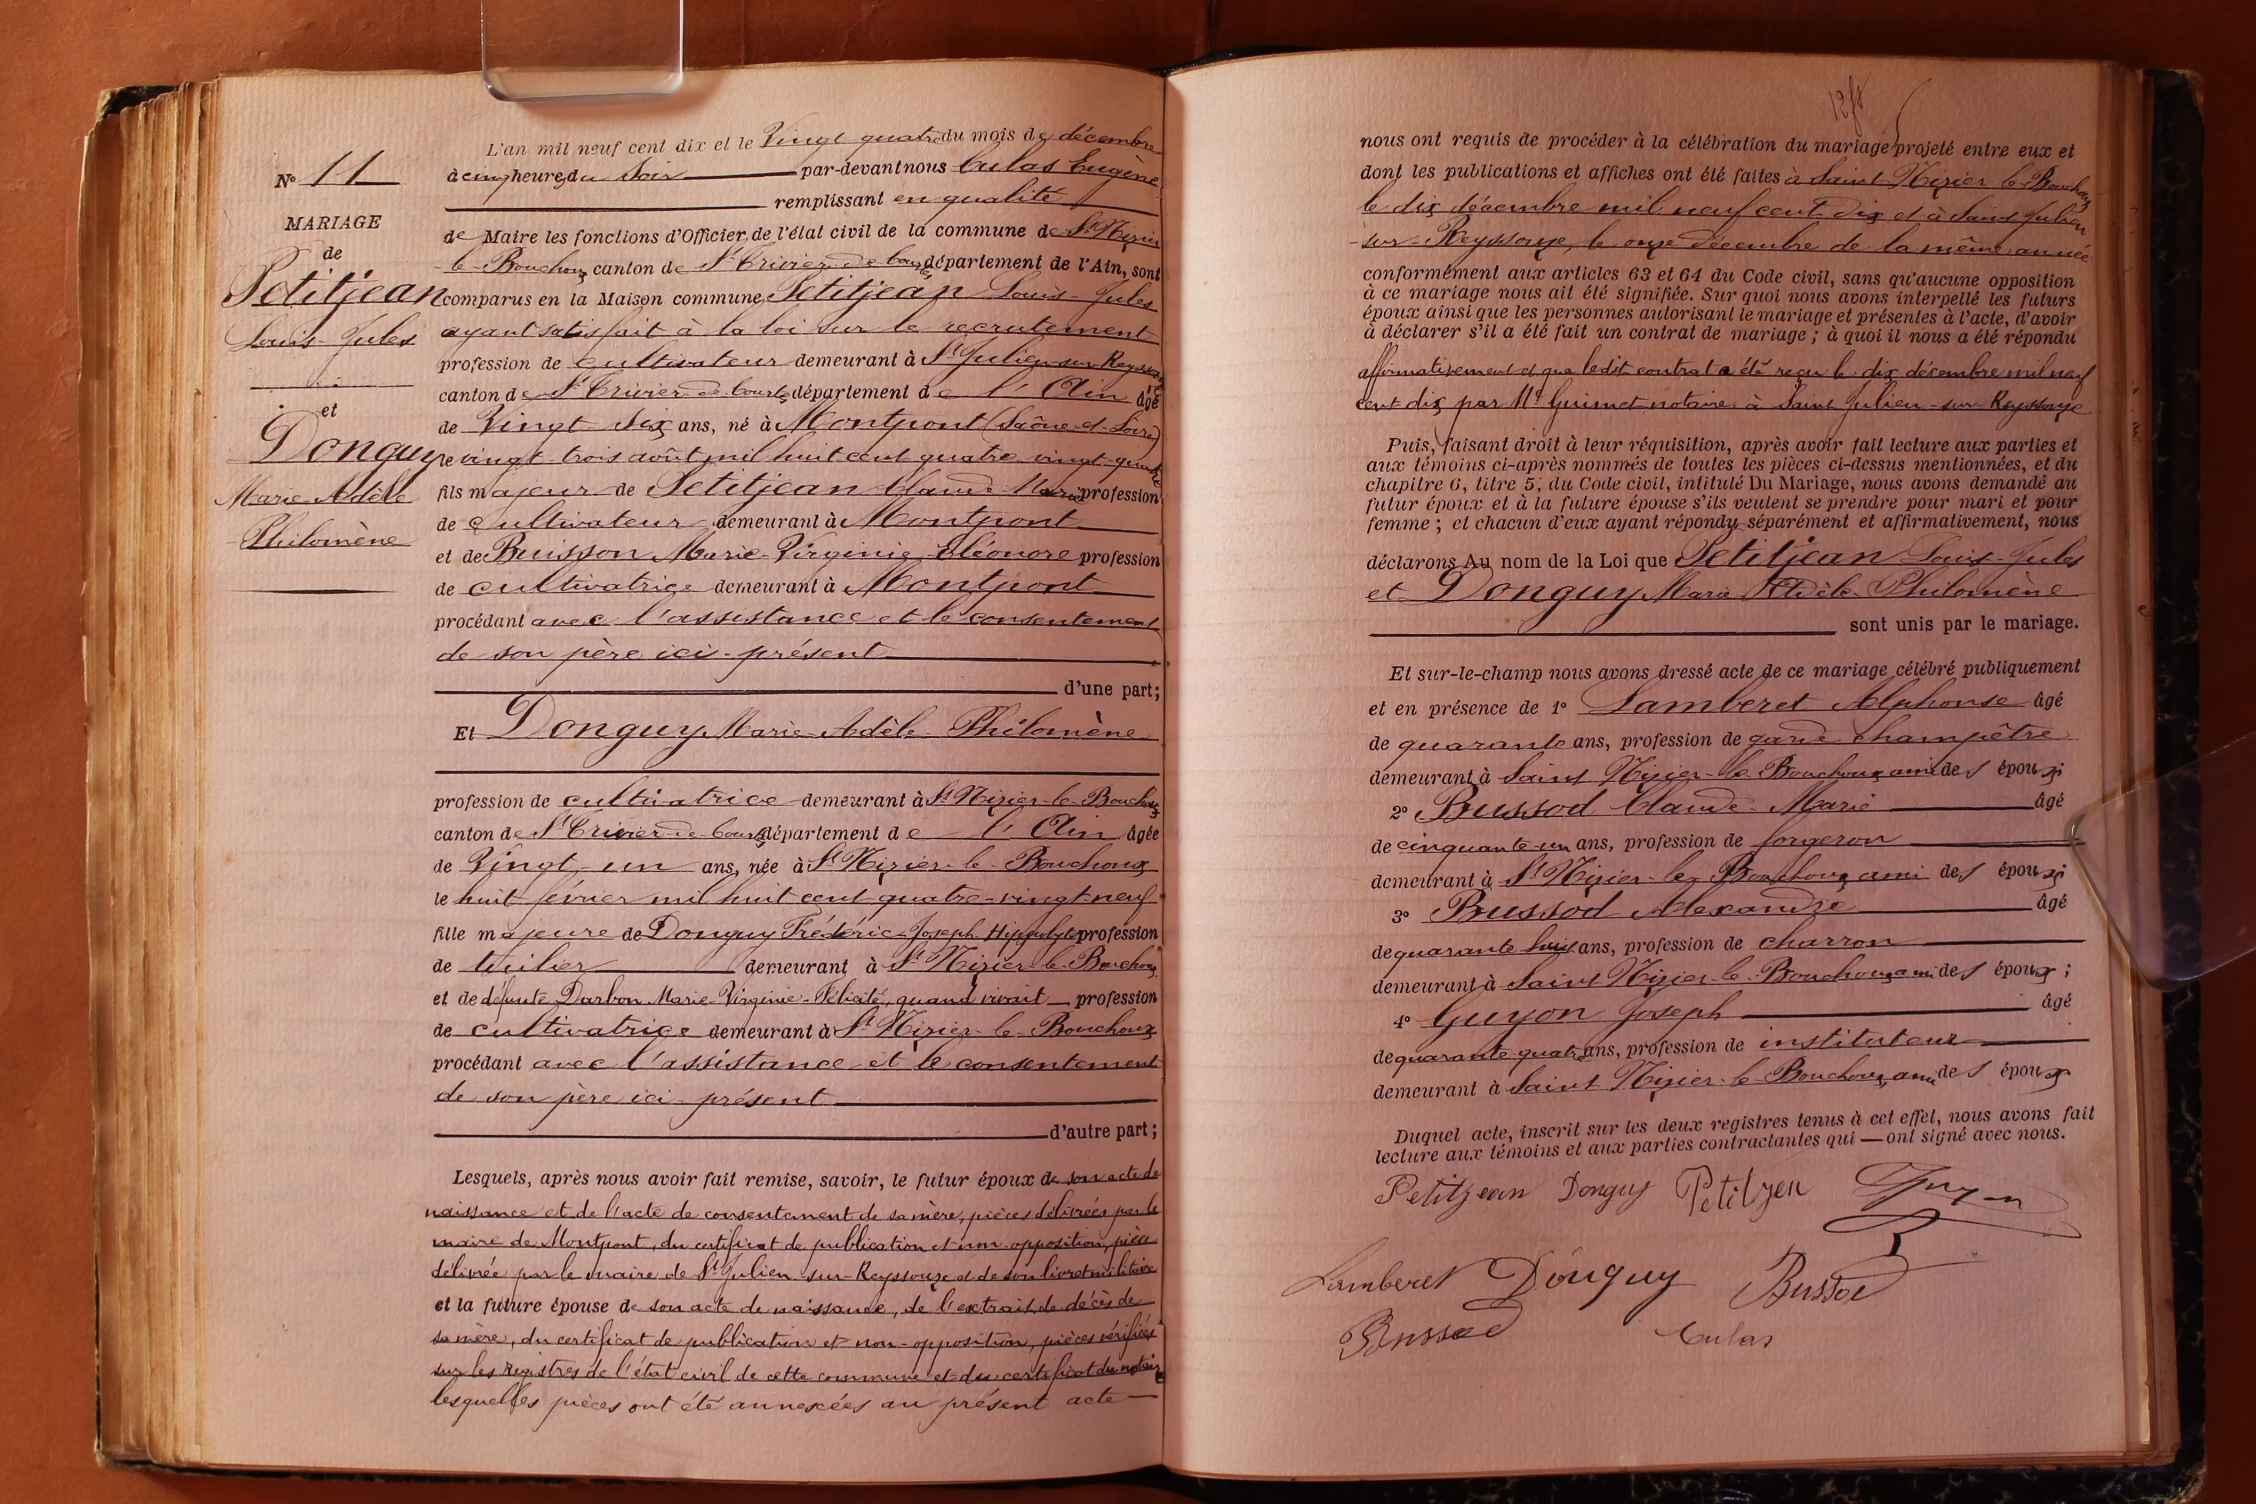 N° 11
MARIAGE
de
Petitjean
Louis-Jules
et
Donguy
Marie Adèle
Philomène
L'an mil neuf cent dix et le Vingt quatre du mois de décembre
à cinq heures du Soir par-devant nous Culas Eugène
remplissant en qualité
de Maire les fonctions d'Officier de l'état civil de la commune de St Nizier
le Bouchoux canton de St Trivier de Courtes département de l'Ain, sont
comparus en la Maison commune Petitjean Louis-Jules
ayant satisfait à la loi sur le recrutement
profession de cultivateur demeurant à St Julien-sur-Reyssouze
canton de St Trivier de Courtes département de l'Ain âgé
de Vingt Six ans, né à Montpont (Saône-et-Loire)
le vingt-trois août mil huit cent quatre-vingt-quatre
fils majeur de Petitjean Claude Marie profession
de cultivateur demeurant à Montpont
et de Buisson Marie-Virginie Eléonore profession
de cultivatrice demeurant à Montpont
procédant avec l'assistance et le consentement
de son père ici-présent
d'une part;
Et Donguy Marie-Adèle Philomène
profession de cultivatrice demeurant à St Nizier-le-Bouchoux
canton de St Trivier-de-Courtes département de l'Ain âgée
de Vingt-un ans, née à St Nizier-le-Bouchoux
le huit février mil huit cent quatre-vingt-neuf
fille majeure de Donguy Frédéric-Joseph Hippolyte profession
de tuilier demeurant à St Nizier-le-Bouchoux
et de défunte Darbon Marie-Virginie-Félicité, quand vivait profession
de cultivatrice demeurant à St Nizier-le-Bouchoux
procédant avec l'assistance et le consentement
de son père ici-présent
d'autre part;
Lesquels, après nous avoir fait remise, savoir, le futur époux de son acte de
naissance et de l'acte de consentement de sa mère, pièces délivrées par le
maire de Montpont, du certificat de publication et non-opposition, pièce
délivrée par le maire de St Julien-sur-Reyssouze et de son livret militaire
et la future épouse de son acte de naissance, de l'extrait de décès de
sa mère, du certificat de publication et non-opposition, pièces vérifiées
sur les registres de l'état civil de cette commune et du certificat du notaire
lesquelles pièces ont été annexées au présent acte
nous ont requis de procéder à la célébration du mariage projeté entre eux et
dont les publications et affiches ont été faites à Saint Nizier-le-Bouchoux
le dix décembre mil neuf cent dix et à Saint Julien
-sur-Reyssouze, le onze décembre de la même année
conformément aux articles 63 et 64 du Code civil, sans qu'aucune opposition
à ce mariage nous ait été signifiée. Sur quoi nous avons interpellé les futurs
époux ainsi que les personnes autorisant le mariage et présentes à l'acte, d'avoir
à déclarer s'il a été fait un contrat de mariage ; à quoi il nous a été répondu
affirmativement et que ledit contrat a été reçu le dix décembre mil neuf
cent dix par Me Guimet notaire à Saint Julien-sur-Reyssouze
Puis, faisant droit à leur réquisition, après avoir fait lecture aux parties et
aux témoins ci-après nommés de toutes les pièces ci-dessus mentionnées, et du
chapitre 6, titre 5, du Code civil, intitulé Du Mariage, nous avons demandé au
futur époux et à la future épouse s'ils veulent se prendre pour mari et pour
femme ; et chacun d'eux ayant répondu séparément et affirmativement, nous
déclarons Au nom de la Loi que Petitjean Louis-Jules
et Donguy Marie Adèle Philomène
sont unis par le mariage.
Et sur-le-champ nous avons dressé acte de ce mariage célébré publiquement
et en présence de 1° Lamberet Alphonse âgé
de quarante ans, profession de garde champêtre
demeurant à Saint Nizier-le-Bouchoux ami des époux;
2° Bussod Claude-Marie âgé
de cinquante-un ans, profession de forgeron
demeurant à St Nizier-le-Bouchoux ami des époux;
3° Bussod Alexandre âgé
de quarante huit ans, profession de charron
demeurant à Saint Nizier-le-Bouchoux ami des époux ;
4° Guyon Joseph âgé
de quarante quatre ans, profession de instituteur
demeurant à Saint Nizier-le-Bouchoux, ami des époux
Duquel acte, inscrit sur les deux registres tenus à cet effet, nous avons fait
lecture aux témoins et aux parties contractantes qui — ont signé avec nous.
Petitjean Donguy Petitjen Guyon
Lamberet Donguy Bussod
Bussod Culas